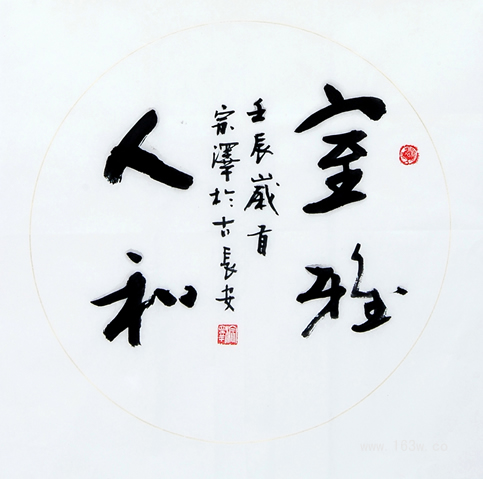 室雅
人和
壬辰歲首
宗澤於古長安
www.163w.co